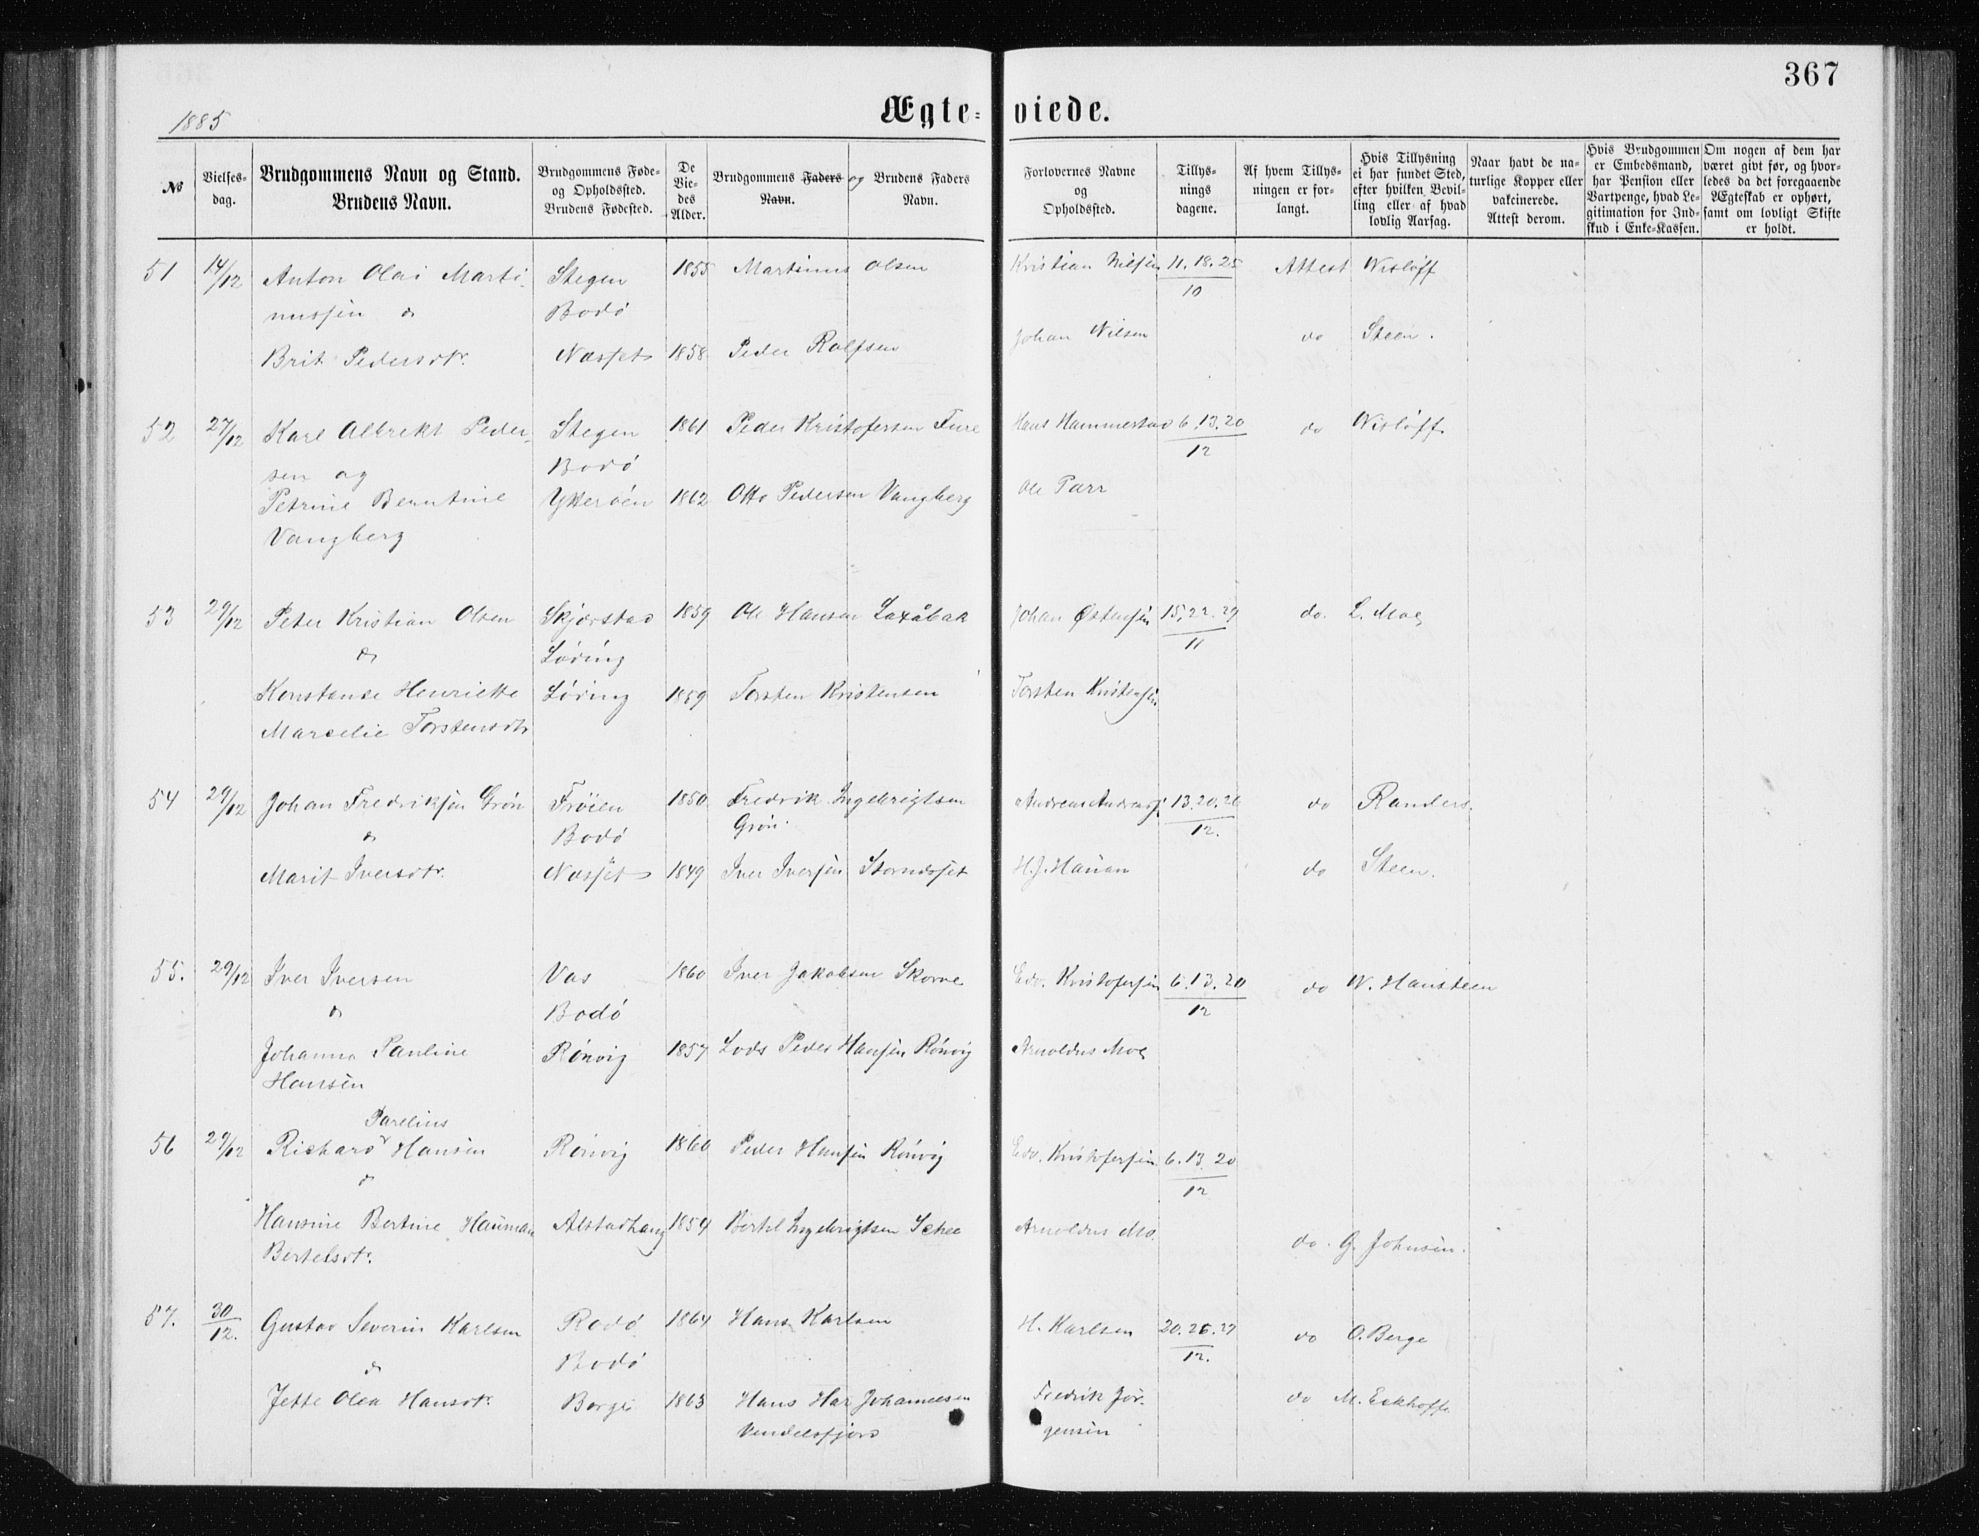 367
1885
Ægteviede.
№
Vielsesdag.
Brudgommens Navn og Stand.
Brudens Navn.
Brudgommens Føde- og Opholdssted.
Brudens Fødested.
De Viedes Alder.
Brudgommens Faders og Brudens Faders
Navn. Navn.
Forlovernes Navne og Opholdssted.
Tillysningsdagene.
Af hvem Tillysningen er forlangt.
Hvis Tillysning ei har fundet Sted, efter hvilken Bevilling eller af hvad lovlig Aarsag.
Naar havt de naturlige Kopper eller vakcinerede. Attest derom.
Hvis Brudgommen er Embedsmand, har Pension eller Vartpenge, hvad Legitimation for Indskud i Enke-Kassen.
Om nogen af dem har været givt før, og hvorledes da det foregaaende Ægteskab er ophørt, samt om lovligt Skifte er holdt.
51 14/12 Anton Olai Marti- Stegen 1855 Martinus Olsen Kristian Nilsen 11.18.25/10 Attest Wisløff
nussen & Bodø
Brit Pedersdtr. Næsset 1858 Peder Rolfsen Johan Nilsen do Steen.
52 27/12 Karl Albrekt Peder- Stegen 1861 Peder Kristofersen Fure Hans Hammerstad 6.13.20/12 do Wisløff
sen og Bodø
Petrine Berntine Ytterøen 1862 Otto Pedersen Vangberg Ole Parr
Vangberg
53 29/12 Peter Kristian Olsen Skjærstad 1859 Ole Hansen Laxåbak Johan Østensen 15,22.29/11 do. L. Moe
& Løding
Konstanse Henriette Løding 1859 Torsten Kristensen Torsten Kristensen
Marselie Torstensdtr
54 29/12 Johan Fredriksen Grøn Frøien 1850 Fredrik Ingebrigtsen Andreas 13.20.26/12. do Randers.
& Bodø Grøn.
Marit Iversdtr. Næsset 1849 Iver Iversen Storndset H.J. Hauan do Steen.
55. 29/12 Iver Iversen Vas 1860 Iver Jakobsen Skorve Edv. Kristofersen 6.13.20/12 do W. Hansteen
& Bodø
Johanna Pauline Rønvig 1857 Lods Peder Hansen Rønvig Arnoldus Moe
Hansen
Parelius
56 29/12 Richard Hansen Rønvig 1860 Peder Hansen Rønvig Edv. Kristofersen 6.13.20/12
&
Hansine Bertine Hauman Alstadhaug 1854 Bertel Ingebrigtsen Arnoldus Mo. do. G. Johnsen.
Bertelsdtr.
57. 30/12. Gustav Severin Karlsen Rødø 1864 Hans Karlsen H. Karlsen 20.26.27/12. do O. Berge
& Bodø
Jette Olea Hansdtr. Borge 1863 Hans Har Johannesen Fredrik Jør- do M. Eckhoff.
Vendelsfjord gensen